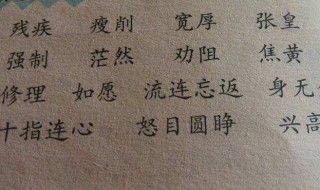 残疾 瘦削 宽厚 张皇
强制 茫然 劝阻 焦黄
修理 如愿 流连忘返 身无
十指连心 怒目圆睁 兴高